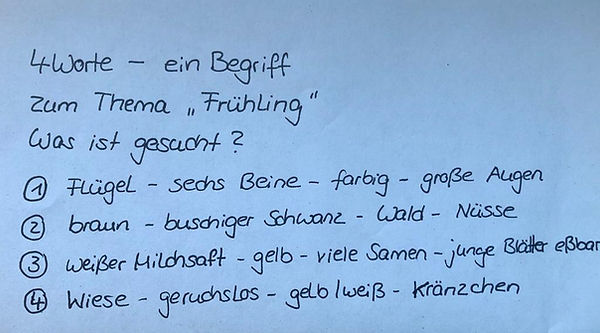 4 Worte – ein Begriff
zum Thema „Frühling"
Was ist gesucht?
① Flügel – sechs Beine – farbig – große Augen
② braun – buschiger Schwanz – Wald – Nüsse
③ weißer Milchsaft – gelb – viele Samen – junge Blätter eßbar
④ Wiese – geruchslos – gelb/weiß – Kränzchen